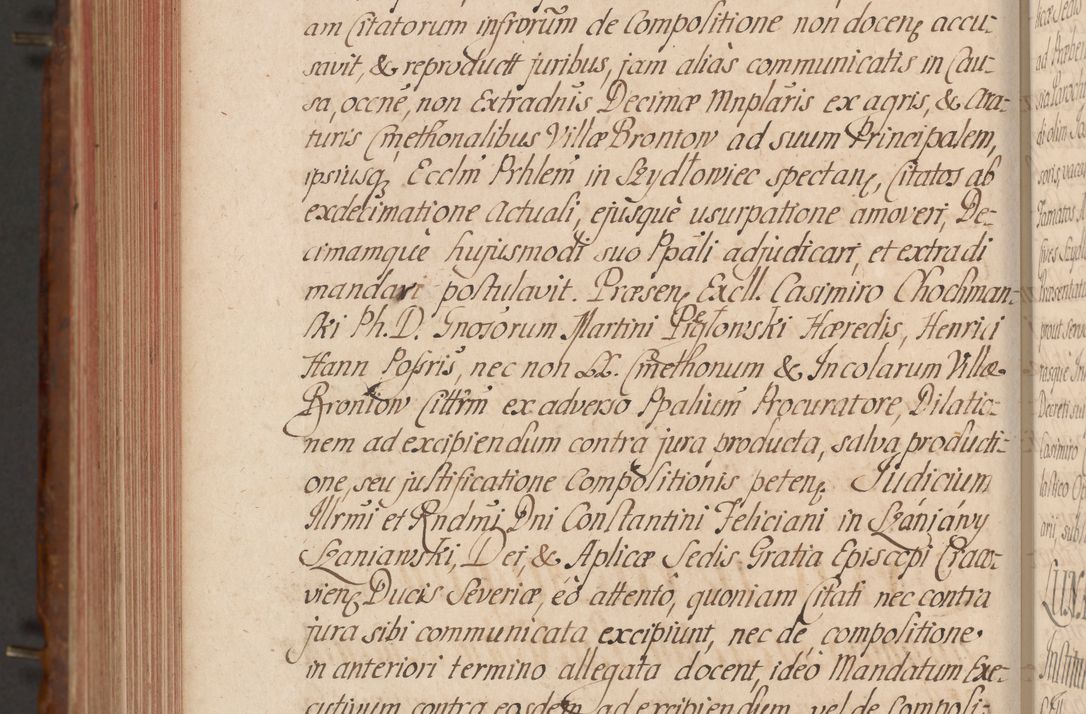 am Citatorum infrorum de Compositione non docenς accu-
savit, & reproductt juribus, jam alias communicatis in Cau-
sa, occne, non Extradnis Decimæ Mnplaris ex agris, & Ara-
turis Cmethonalibus Villæ Brontow ad suum Principalem,
ipsiusq Ecclm Prhlem in Szydłowiec spectanς, Citatos ab
exdecimatione Actuali, ejusque usurpatione amoveri, De-
cimamque hujusmodi suo Ppali adjudicari, et extradi
mandari postulavit. Præsenς Excll. Casimiro Chochman-
ski Ph. D. Gnosorum Martini Hæredis, Henrici
Hann Possris, nec non LL. Cmethonum & Incolarum Villæ
Brontow Cittrm ex adverso Ppalium Procuratore, Dilatio-
nem ad excipiendum contra jura producta, salva producti-
one, seu justificatione Compositionis petenς. Judicium
Illrmi et Rndmi Dni Constantini Feliciani in Szaniawy
Szaniawski, Dei, & Aplicæ Sedis Gratia Episcopi Craco-
vienς Ducis Severiæ, eo attento, quoniam Citati nec contra
jura sibi communicata excipiunt, nec de compositione
in anteriori termino allegata docent, ideo Mandatum Exe-
cutivum contra eosdem ad excipiendum, vel de Composi-